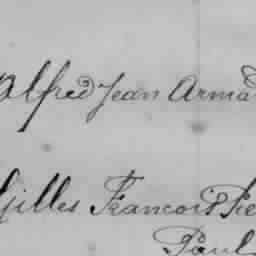 Alfred Jean Arma
Gilles Francois Pie
Paul